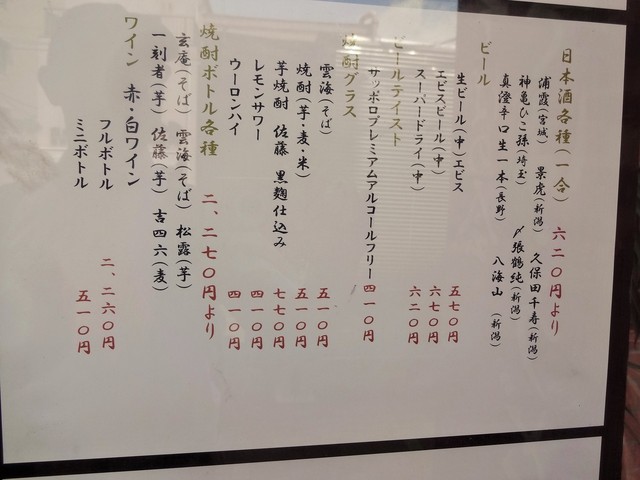 日本酒各種(一合) 六二〇円より
浦霞(宮城) 景虎(新潟) 久保田千寿(新潟)
神亀ひこ孫(埼玉) 〆張鶴純(新潟)
真澄辛口生一本(長野) 八海山(新潟)
ビール
生ビール(中)ヱビス 五七〇円
ヱビスビール(中) 六七〇円
スーパードライ(中) 六二〇円
ビールテイスト
サッポロプレミアムアルコールフリー 四一〇円
焼酎グラス
雲海(そば) 五一〇円
焼酎(芋・麦・米) 五一〇円
芋焼酎 佐藤 黒麹仕込み 七七〇円
レモンサワー 四一〇円
ウーロンハイ 四一〇円
焼酎ボトル各種 二、二七〇円より
玄庵(そば) 雲海(そば) 松露(芋)
一刻者(芋) 佐藤(芋) 吉四六(麦)
ワイン 赤・白ワイン
フルボトル 二、二六〇円
ミニボトル 五一〇円